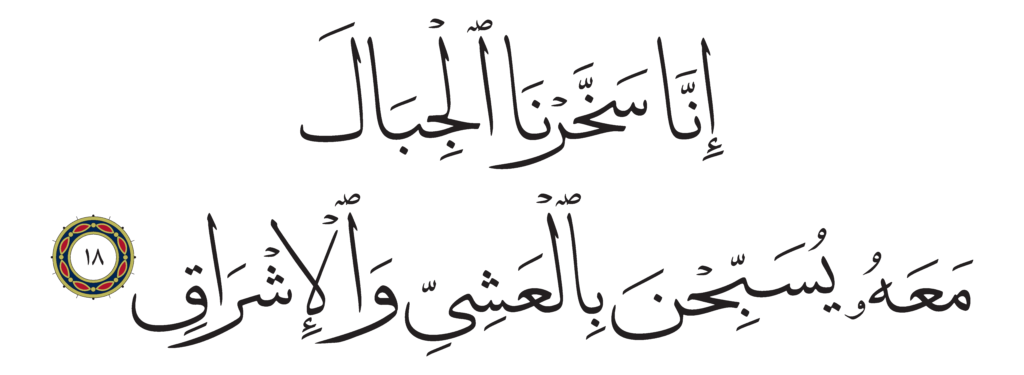 إِنَّا سَخَّرْنَا ٱلْجِبَالَ
مَعَهُۥ يُسَبِّحْنَ بِٱلْعَشِىِّ وَٱلْإِشْرَاقِ ١٨